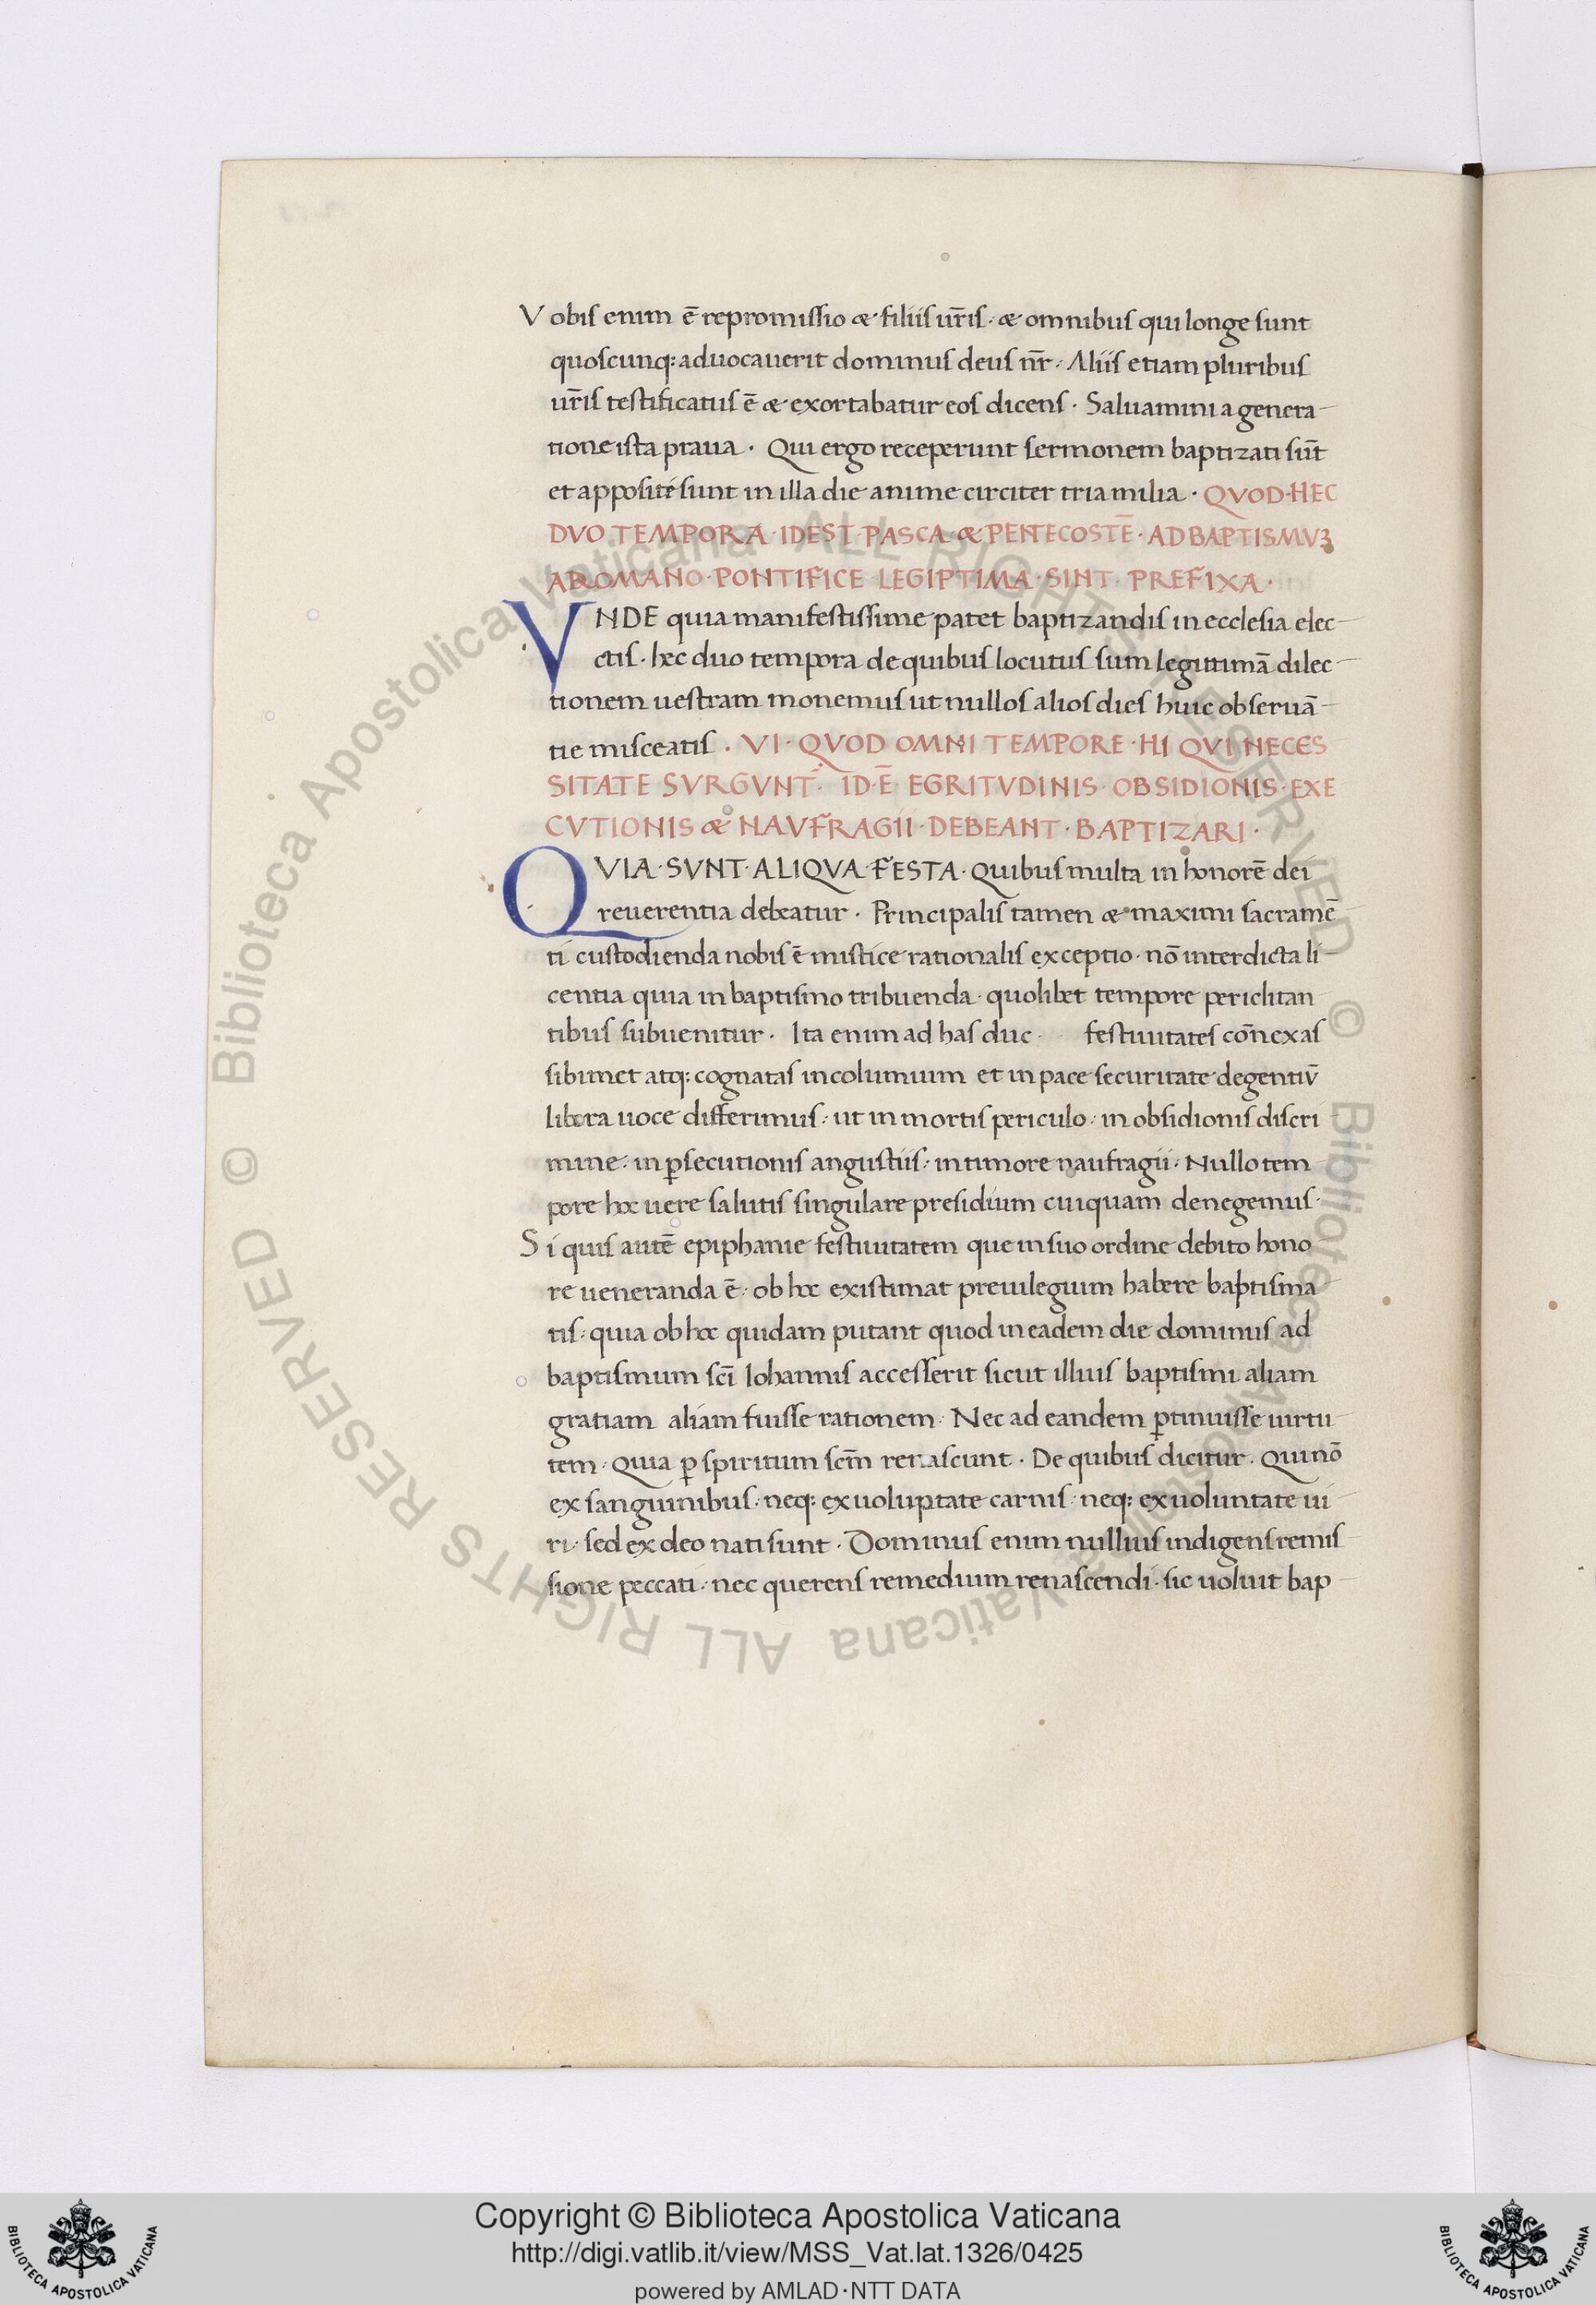 Vobis enim ē repromissio æ filiis ur̄is · æ omnibus qui longe sunt
quoscunq: aduocauerit dominus deus nr̄ · Aliis etiam pluribus
ur̄is testificatus ē æ exortabatur eos dicens · Saluamini a genera-
tione ista praua · Qui ergo receperunt sermonem baptizati sūt
et apposite sunt in illa die anime circiter tria milia · QVOD·HEC
DVO TEMPORA·IDEST·PASCA æ PENTECOSTĒ·AD BAPTISMVꝫ
A ROMANO·PONTIFICE LEGIPTIMA·SINT·PREFIXA·
VNDE quia manifestissime patet baptizandis in ecclesia elec-
ctis · hec duo tempora de quibus locutus sum legittimā dilec-
tionem uestram monemus ut nullos alios dies huic obseruā-
tie misceatis · VI·QVOD OMNI TEMPORE·HI QVI NECES
SITATE SVRGVNT· ID·Ē·EGRITVDINIS·OBSIDIONIS·EXE
CVTIONIS æ NAVFRAGII·DEBEANT·BAPTIZARI·
QVIA·SVNT·ALIQVA·FESTA·Quibus multa in honorē dei
reuerentia debeatur · Principalis tamen æ maximi sacramē-
ti custodienda nobis ē mistice rationalis exceptio · nō interdicta li-
centia quia in baptismo tribuenda · quolibet tempore periclitan-
tibus subuenitur · Ita enim ad has duc festiuitates cōnexas
sibimet atq: cognatas incolumium et in pace securitate degentiū
libera uoce differimus · ut in mortis periculo · in obsidionis discri-
mine · in ꝑsecutionis angustiis · in timore naufragii · Nullo tem-
pore hoc uere salutis singulare presidium cuiquam denegemus ·
Si quis autē epiphanie festiuitatem que in suo ordine debito hono-
re ueneranda ē · ob hoc existimat preuilegium habere baptisma-
tis · quia ob hoc quidam putant quod in eadem die dominus ad
baptismum scī Iohannis accesserit sicut illius baptismi aliam
gratiam aliam fuisse rationem · Nec ad eandem ꝑtinuisse uirtu-
tem · Quia ꝑ spiritum scm̄ renascunt · De quibus dicitur · Qui nō
ex sanguinibus · neq: ex uoluptate carnis · neq: ex uoluntate ui-
ri · sed ex deo nati sunt · Dominus enim nullius indigens remis-
sione peccati · nec querens remedium renascendi · sic uoluit bap-
© Biblioteca Apostolica Vaticana ALL RIGHTS RESERVED © Biblioteca Apostolica Vaticana ALL RIGHTS RESERVED
Copyright © Biblioteca Apostolica Vaticana
http://digi.vatlib.it/view/MSS_Vat.lat.1326/0425
powered by AMLAD·NTT DATA
BIBLIOTECA APOSTOLICA VATICANA
BIBLIOTECA APOSTOLICA VATICANA